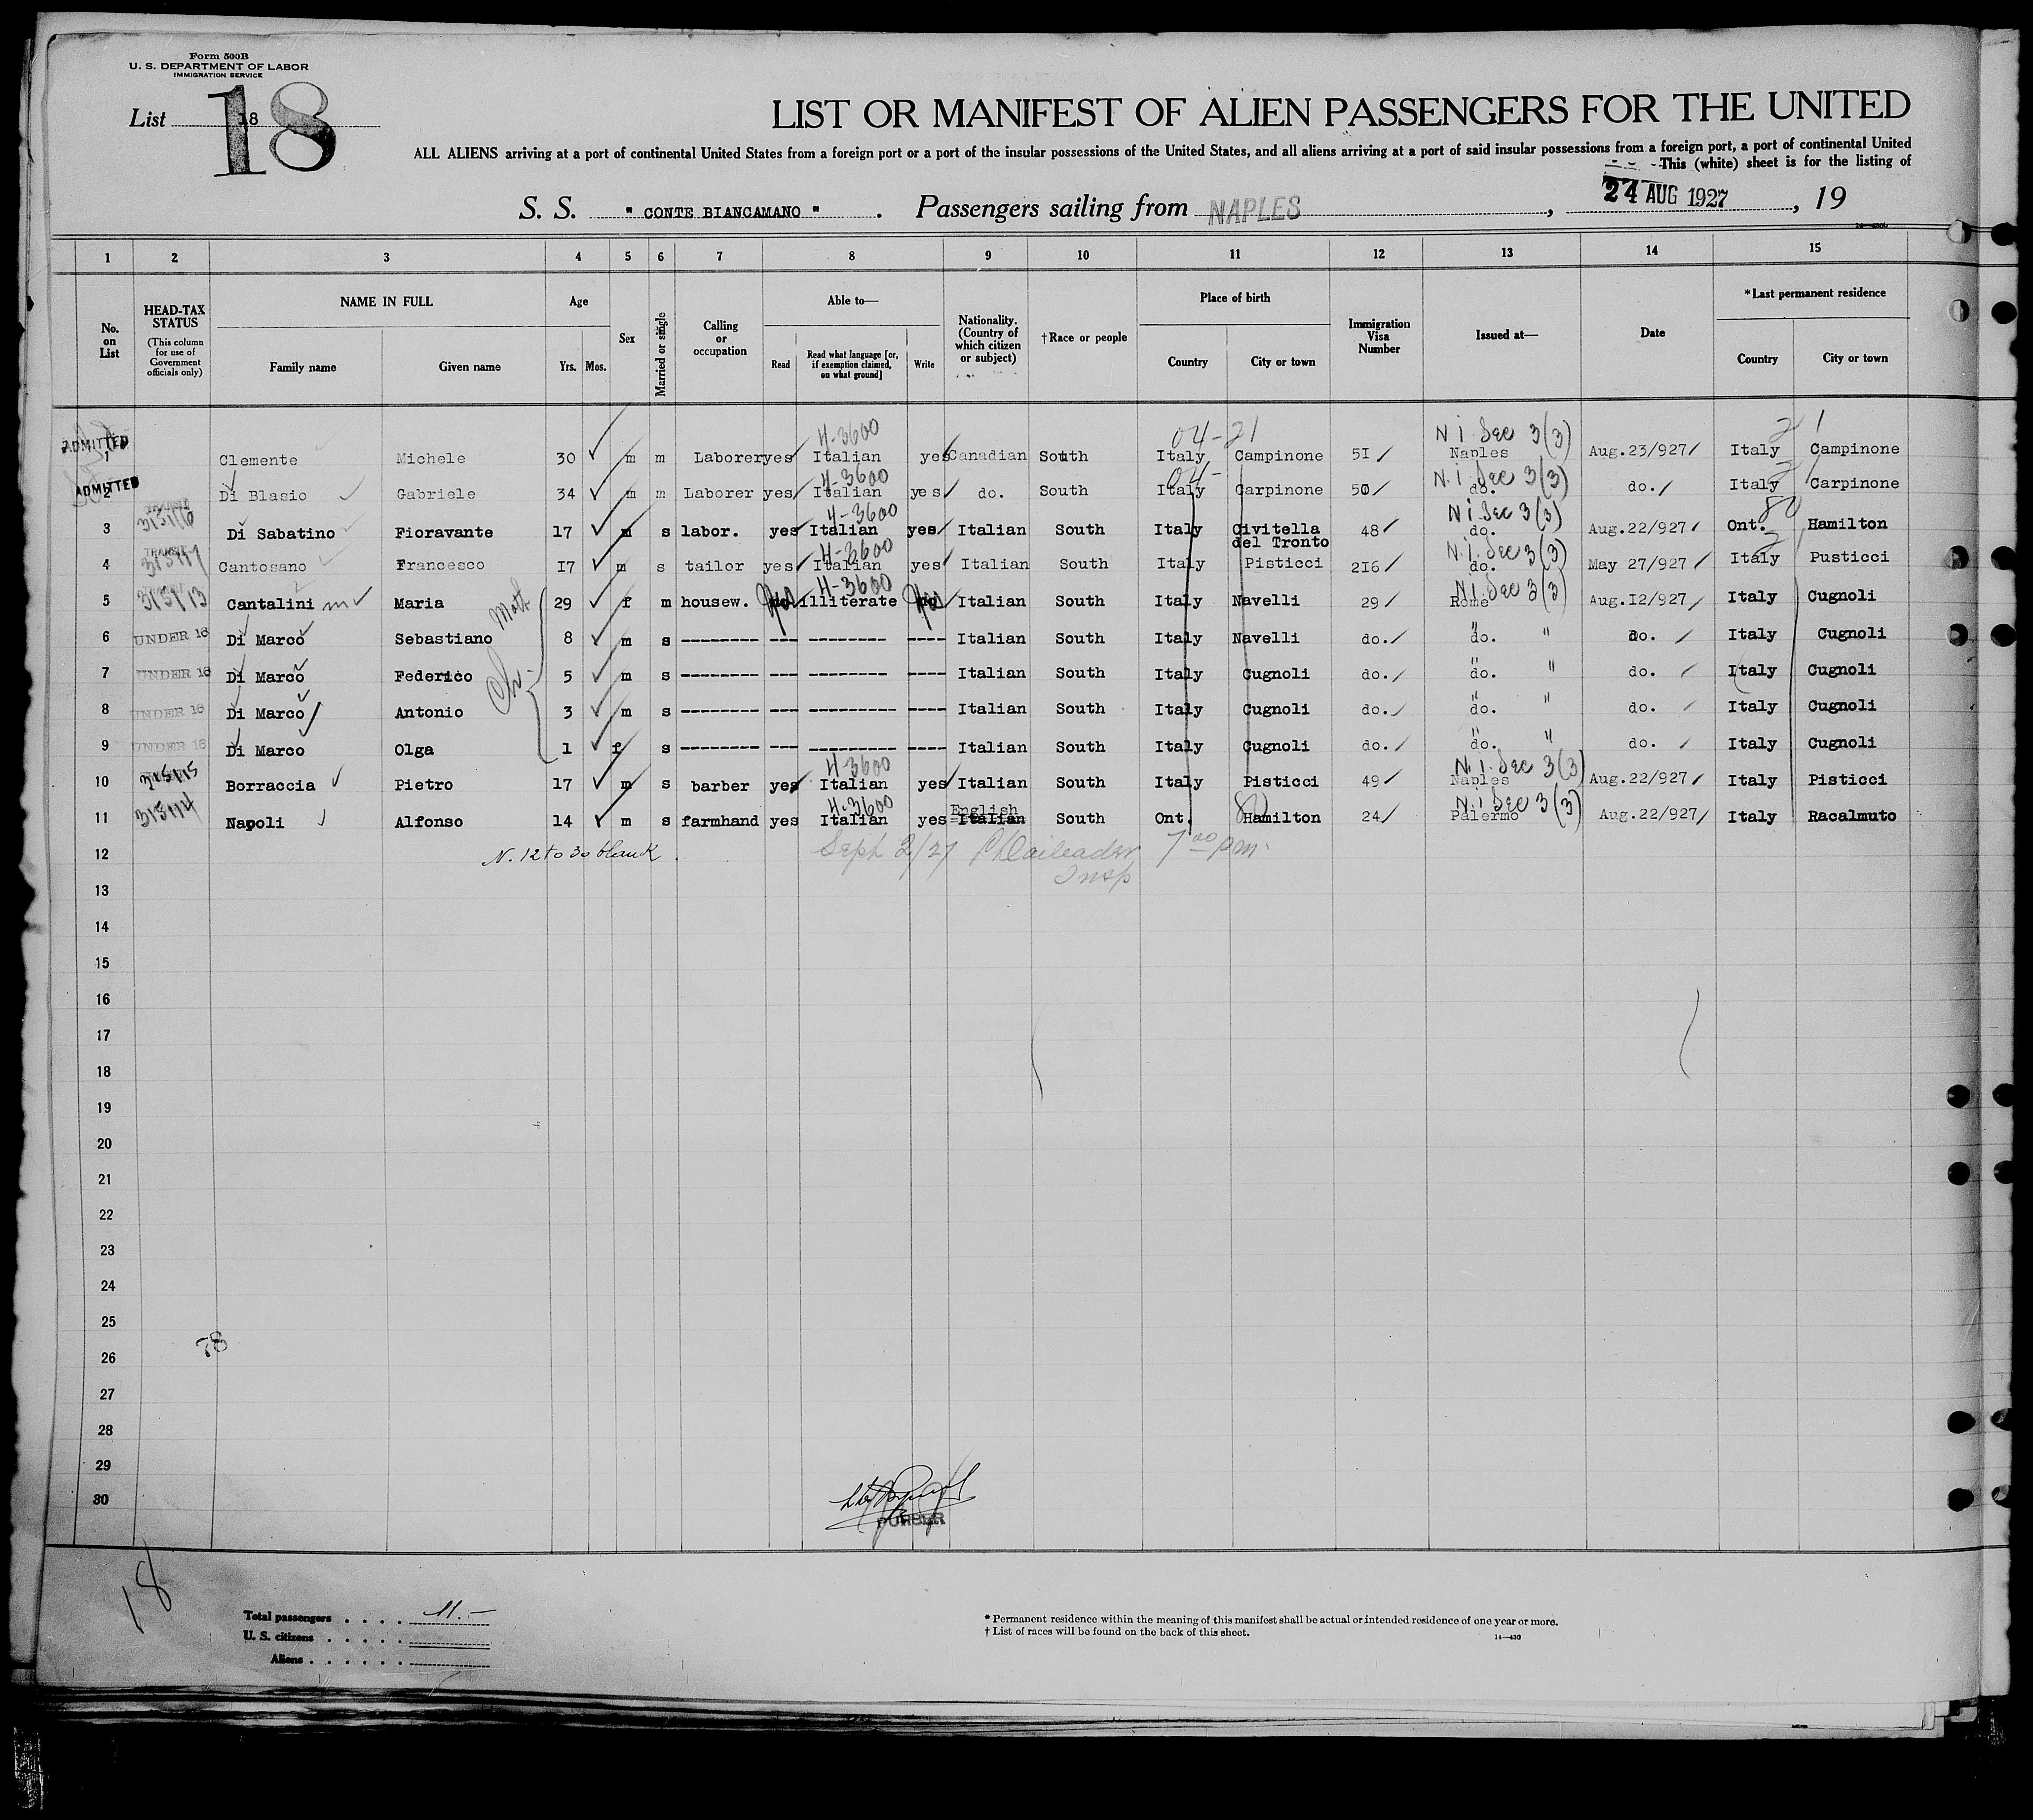 Form 500B
U. S. DEPARTMENT OF LABOR
IMMIGRATION SERVICE
List 18
18
LIST OR MANIFEST OF ALIEN PASSENGERS FOR THE UNITED
ALL ALIENS arriving at a port of continental United States from a foreign port or a port of the insular possessions of the United States, and all aliens arriving at a port of said insular possessions from a foreign port, a port of continental United
This (white) sheet is for the listing of
S. S. " CONTE BIANCAMANO " . Passengers sailing from NAPLES , 24 AUG 1927 , 19
1 2 3 4 5 6 7 8 9 10 11 12 13 14 15
No. on List
HEAD-TAX STATUS
(This column for use of Government officials only)
NAME IN FULL
Family name Given name
Age
Yrs. Mos.
Sex
Married or single
Calling or occupation
Able to—
Read Read what language [or, if exemption claimed, on what ground] Write
Nationality. (Country of which citizen or subject)
†Race or people
Place of birth
Country City or town
Immigration Visa Number
Issued at—
Date
*Last permanent residence
Country City or town
4-3600 04-21 N.I. Sec 3(3) 2 1
ADMITTED 1 Clemente Michele 30 m m Laborer yes Italian yes Canadian South Italy Campinone 51 Naples Aug.23/927 Italy Campinone
4-3600 04- N.I. Sec 3(3)
ADMITTED 2 Di Blasio Gabriele 34 m m Laborer yes Italian yes do. South Italy Carpinone 50 do. do. Italy Carpinone
4-3600 N.I. Sec 3(3) 80
3 Di Sabatino Fioravante 17 m s labor. yes Italian yes Italian South Italy Civitella del Tronto 48 do. Aug.22/927 Ont. Hamilton
4-3600 N.I. Sec 3(3) 2
4 TRANSIT Cantosano Francesco 17 m s tailor yes Italian yes Italian South Italy Pisticci 216 do. May 27/927 Italy Pusticci
4-3600 N.I. Sec 3(3)
5 Cantalini m Maria Moth 29 f m housew. no illiterate no Italian South Italy Navelli 29 Rome Aug.12/927 Italy Cugnoli
6 UNDER 16 Di Marco Sebastiano 8 m s -------- --- -------- ---- Italian South Italy Navelli do. do. " do. Italy Cugnoli
7 UNDER 16 Di Marco Federico Ch. 5 m s -------- --- -------- ---- Italian South Italy Cugnoli do. do. " do. Italy Cugnoli
8 UNDER 16 Di Marco Antonio 3 m s -------- --- -------- ---- Italian South Italy Cugnoli do. do. " do. Italy Cugnoli
9 UNDER 16 Di Marco Olga 1 f s -------- --- -------- ---- Italian South Italy Cugnoli do. do. " do. Italy Cugnoli
4-3600 N.I. Sec 3(3)
10 Borraccia Pietro 17 m s barber yes Italian yes Italian South Italy Pisticci 49 Naples Aug.22/927 Italy Pisticci
4-3600 English 80 N.I. Sec 3(3)
11 Napoli Alfonso 14 m s farmhand yes Italian yes Italian South Ont. Hamilton 24 Palermo Aug.22/927 Italy Racalmuto
12 N. 12 to 30 blank. Sept 2/27 7 00 pm.
Insp
13
14
15
16
17
18
19
20
21
22
23
24
25
26
27
28
29
30
PURSER
18
Total passengers . . . . 11.-
U. S. citizens . . . . .
Aliens . . . . . .
* Permanent residence within the meaning of this manifest shall be actual or intended residence of one year or more.
† List of races will be found on the back of this sheet.
14—430